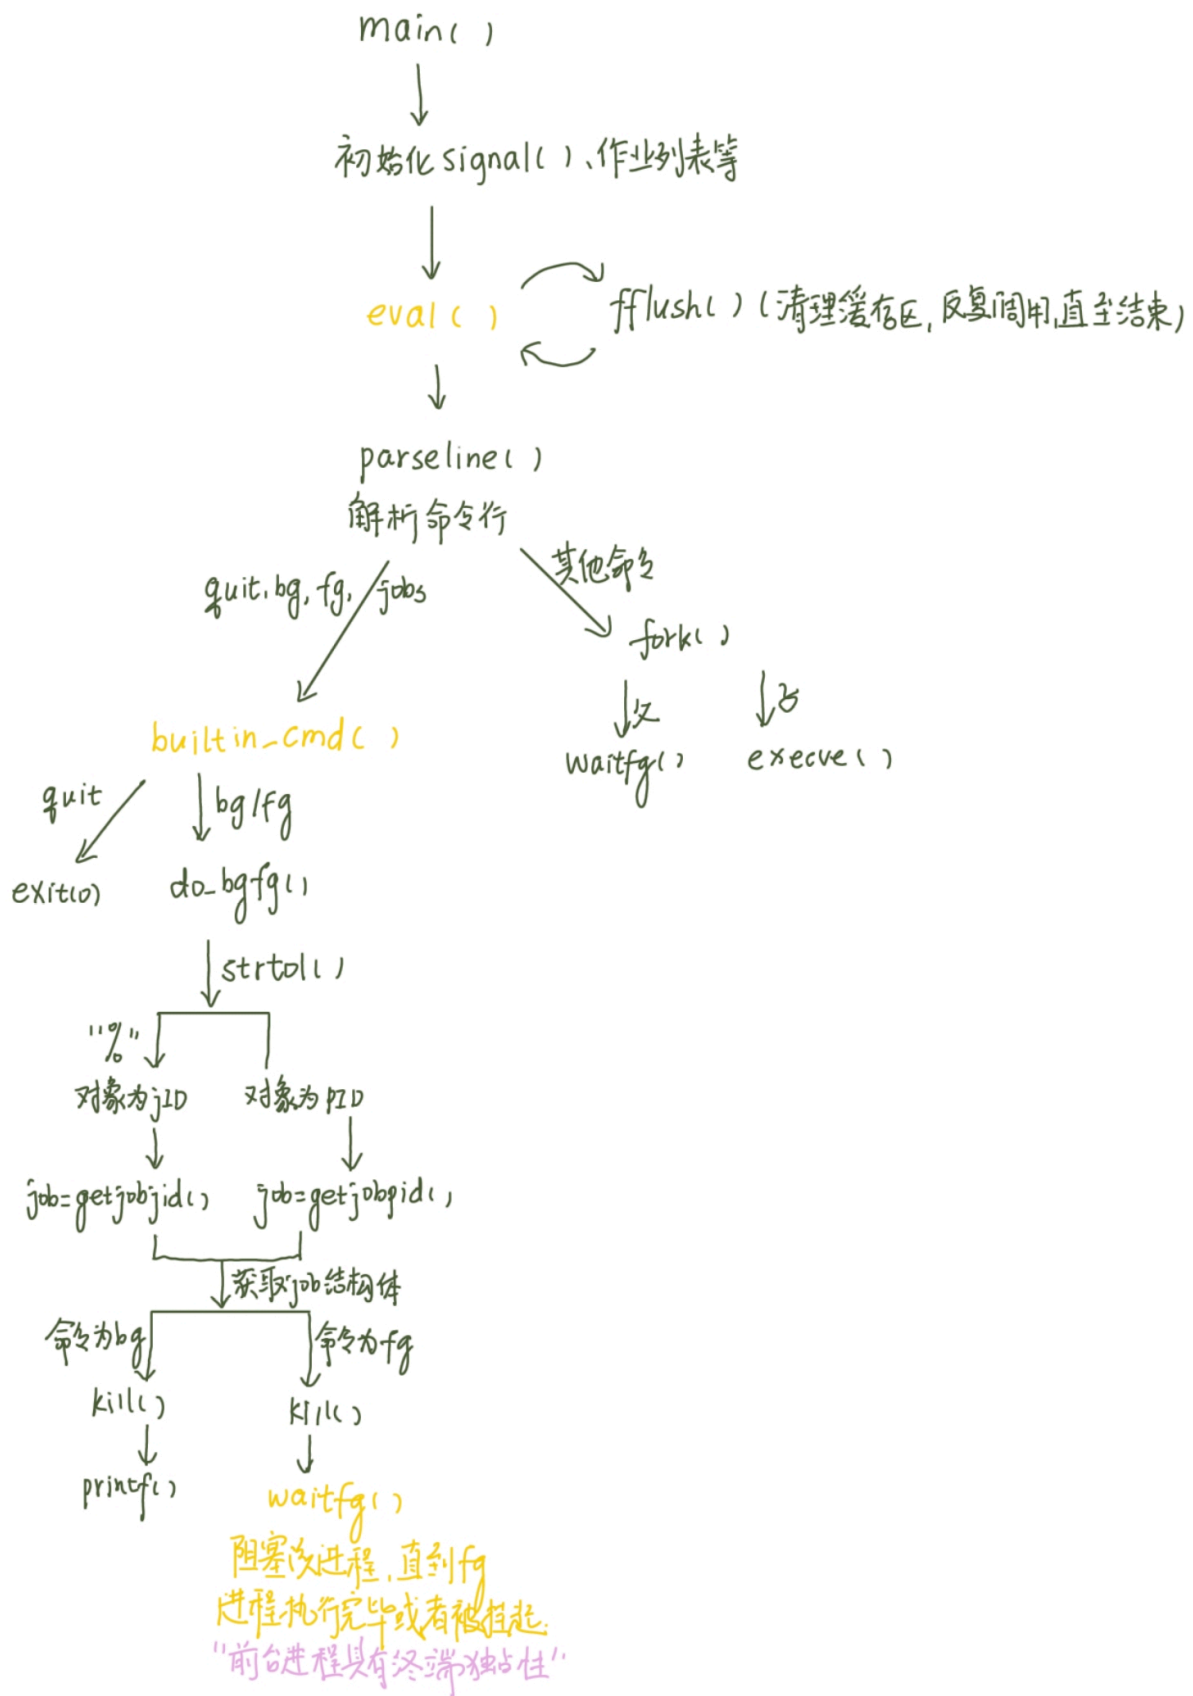 main( )
初始化signal( )、作业列表等
eval( )
fflush( ) (清理缓存区, 反复调用,直至结束)
parseline( )
解析命令行
quit, bg, fg, jobs
其他命令
fork( )
父
子
waitfg( )
execve( )
builtin_cmd( )
quit
bg/fg
exit(0)
do_bgfg( )
strtol( )
"%"
对象为jID
对象为PID
job=getjobjid( )
job=getjobpid( )
获取job结构体
命令为bg
命令为fg
kill( )
kill( )
printf( )
waitfg( )
阻塞该进程, 直到fg
进程执行完毕或者被挂起.
"前台进程具有终端独占性"